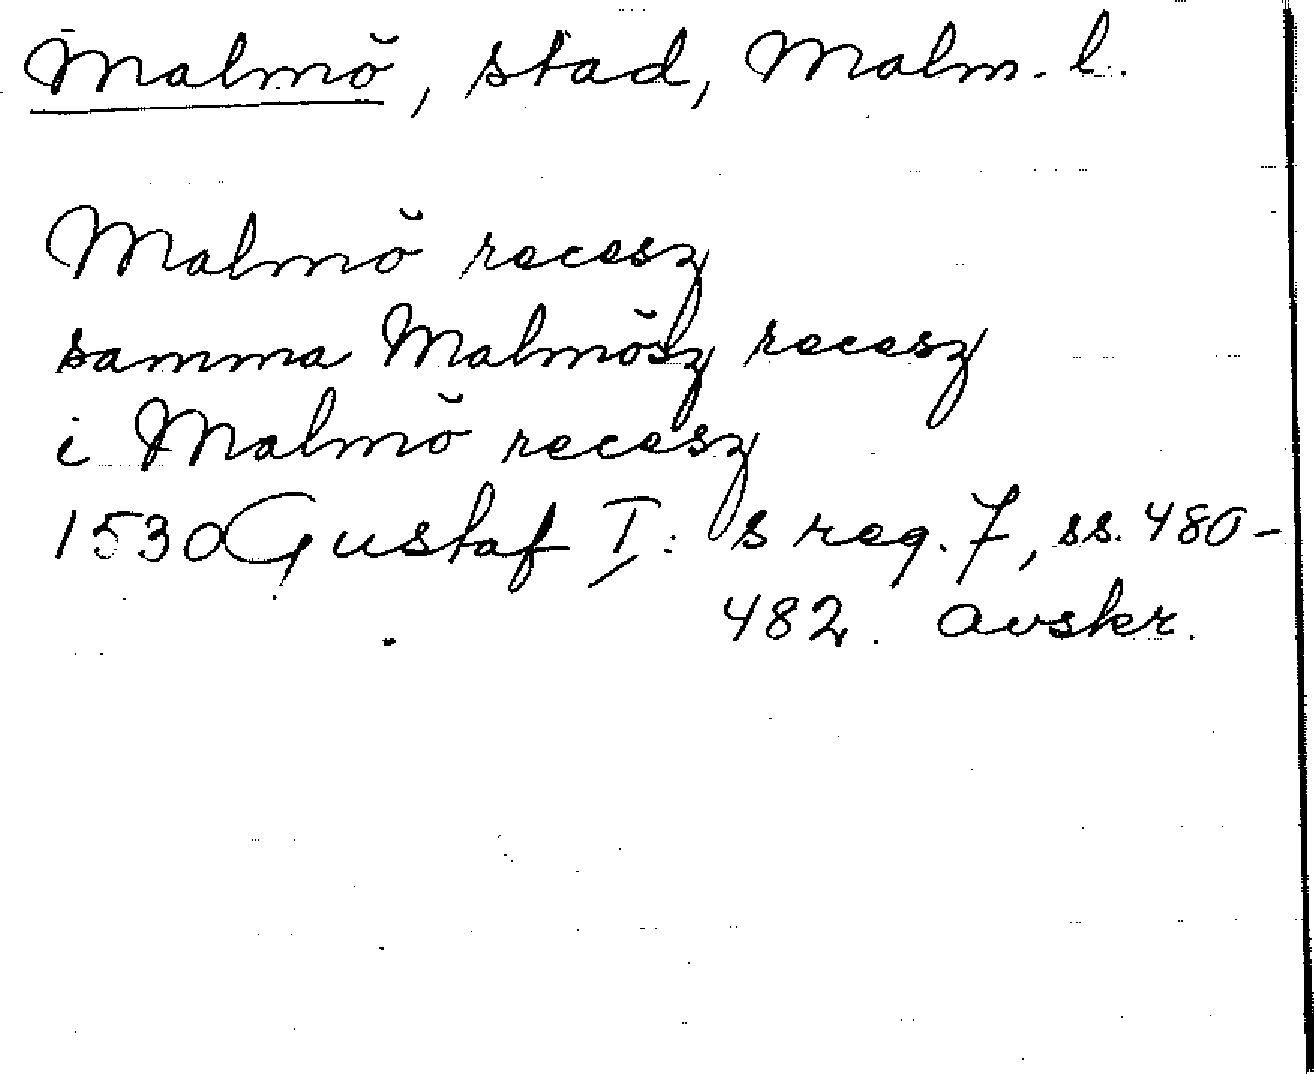 Malmö, stad, Malm. l.
Malmö recesz
samma Malmösz recesz
i Malmö recesz
1530 Gustaf I: s reg. 7, ss. 480-
482. avskr.